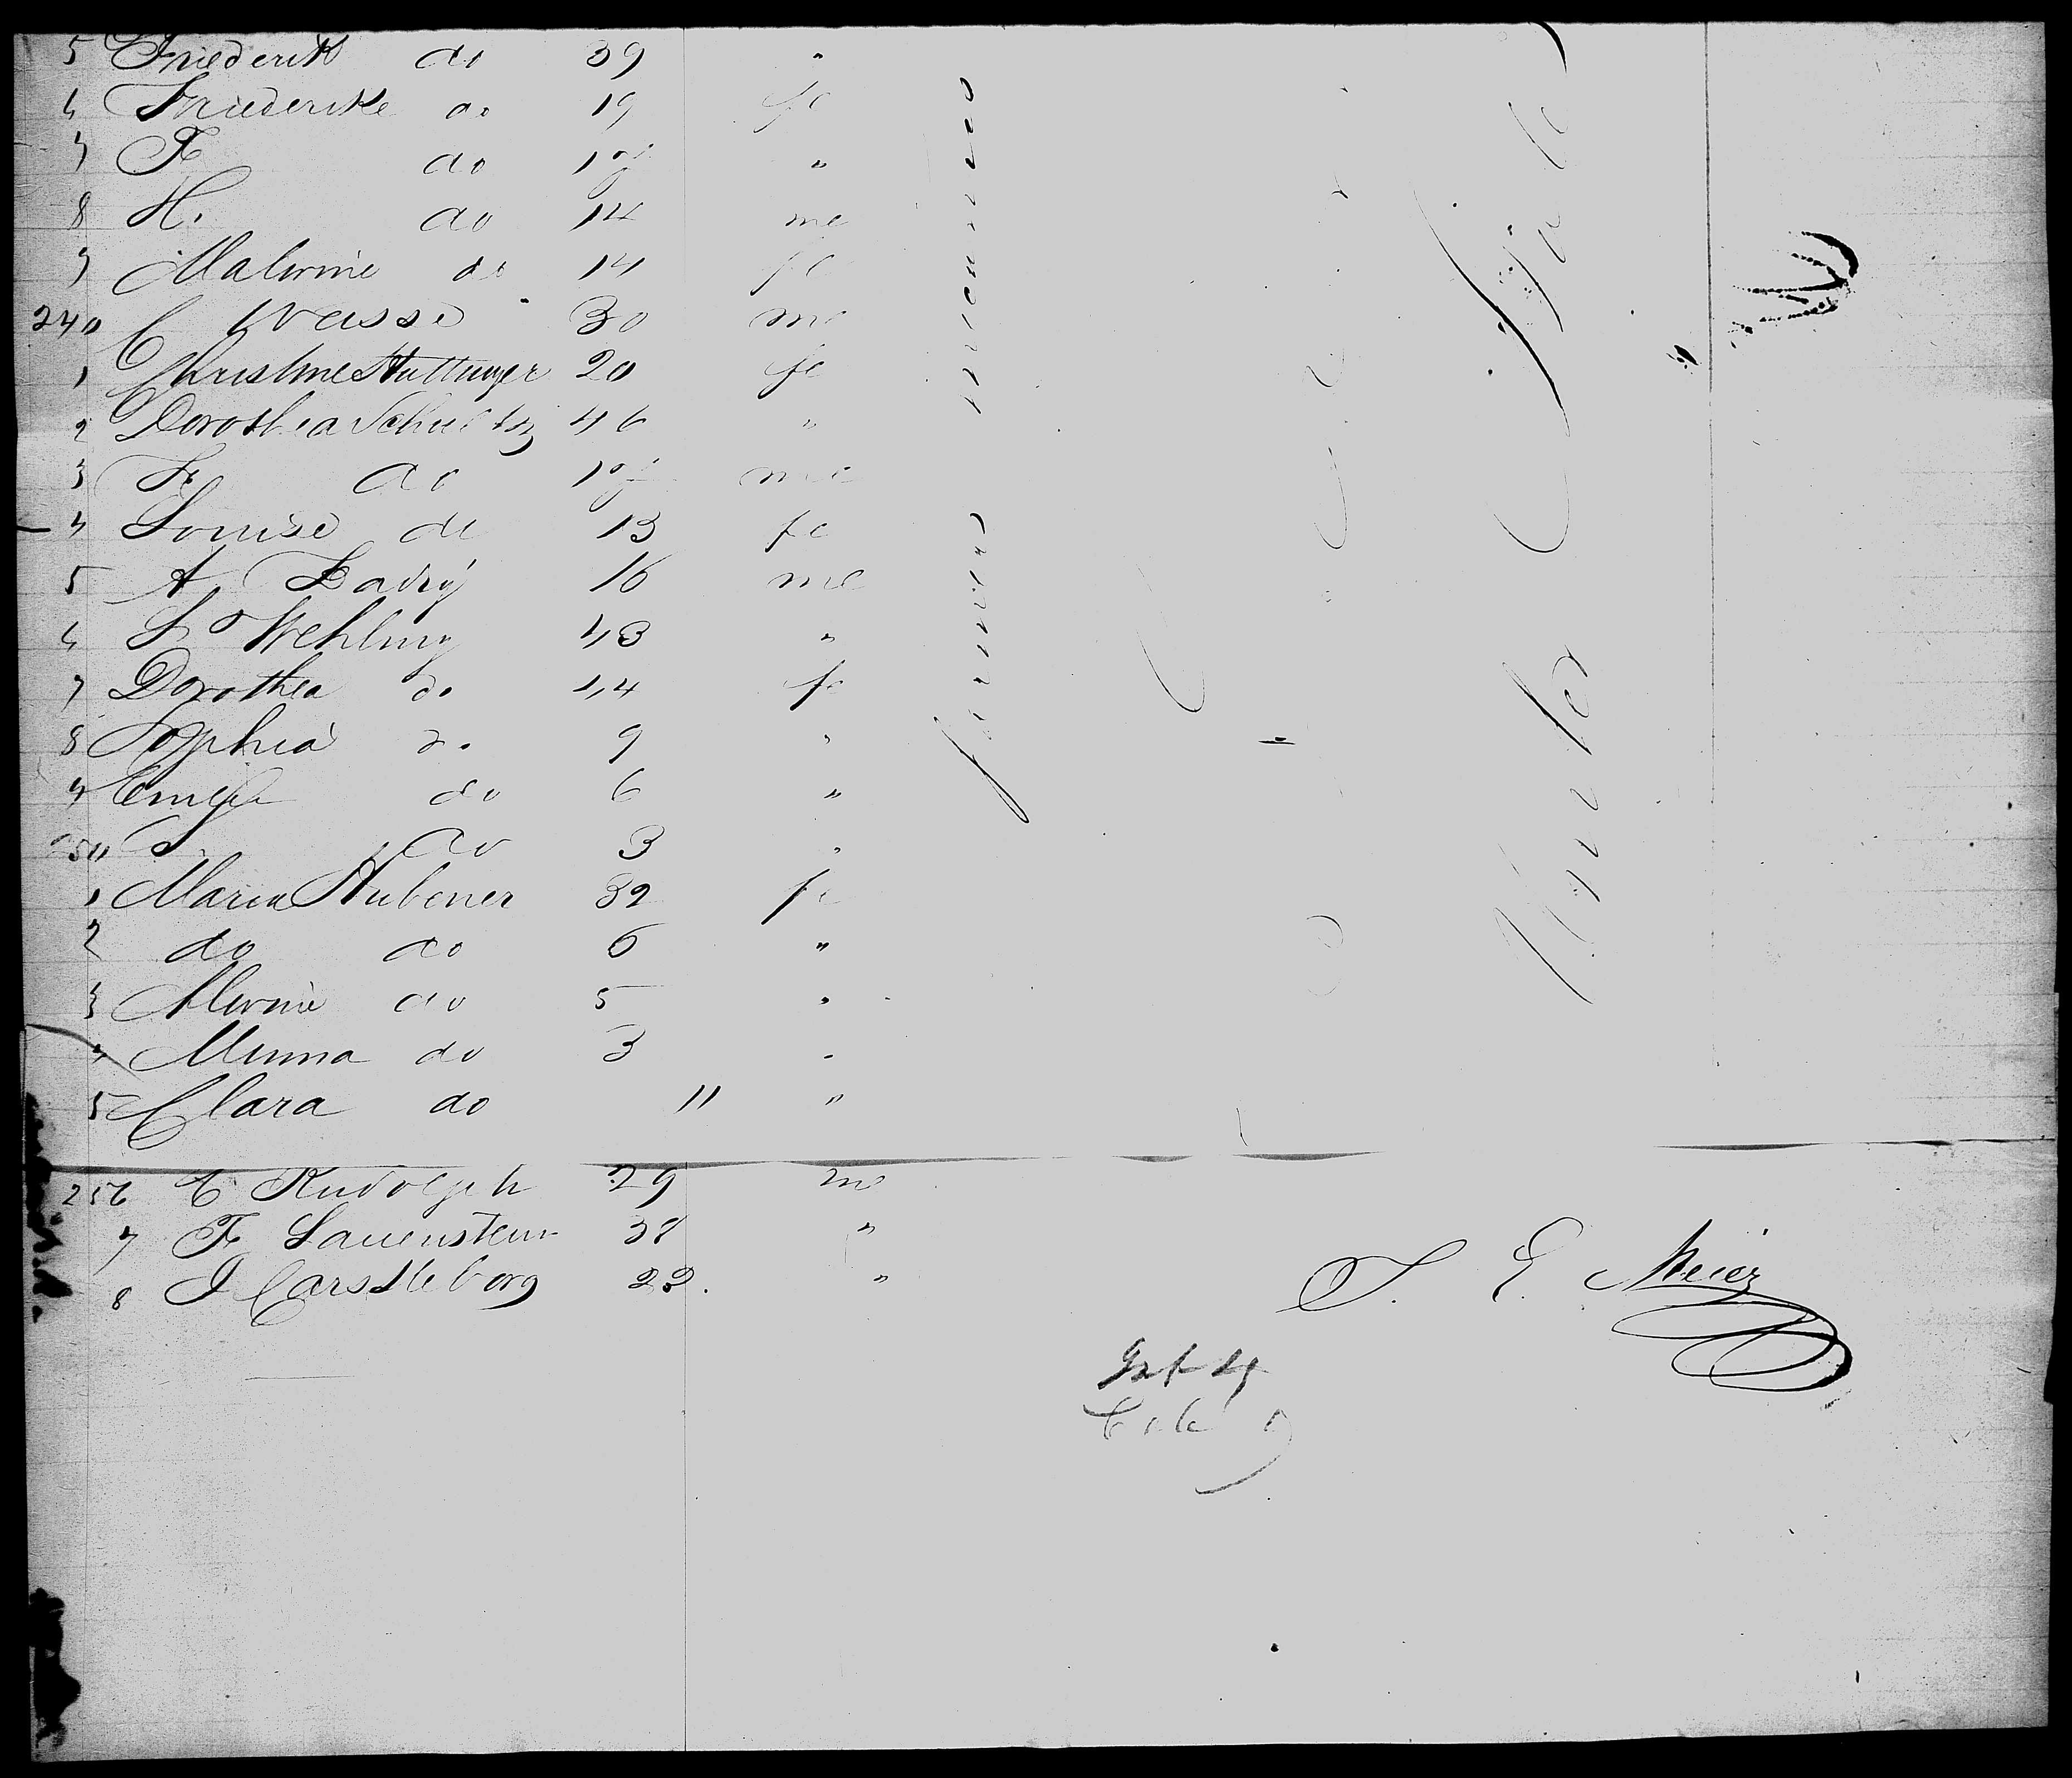 5 Friederik do 39 "
6 Friederike do 19 fe
7 F. do "
8 H. do 14 me
9 Malwine do 14 fe
240 C Wasse 30 me
1 Christine Huttunger 20 fe
2 Dorothea Schultz 46 "
3 F. do me
4 Louise do 13 fe
5 A. 16 me
6 L. Wehling 43 "
7 Dorothea do 44 fe
8 Sophia do 9 "
9 do 6 "
250 do 3 "
1 Maria Hubener 32 fe
2 do do 6 "
3 Alwine do 5 "
4 Minna do 3 "
5 Clara do 11 "
256 C Rudolph 29 me
7 F. Lauenstein 38 "
8 J Carstleborg 22. "
farmers
mecanicos
United States
J. E. Meier